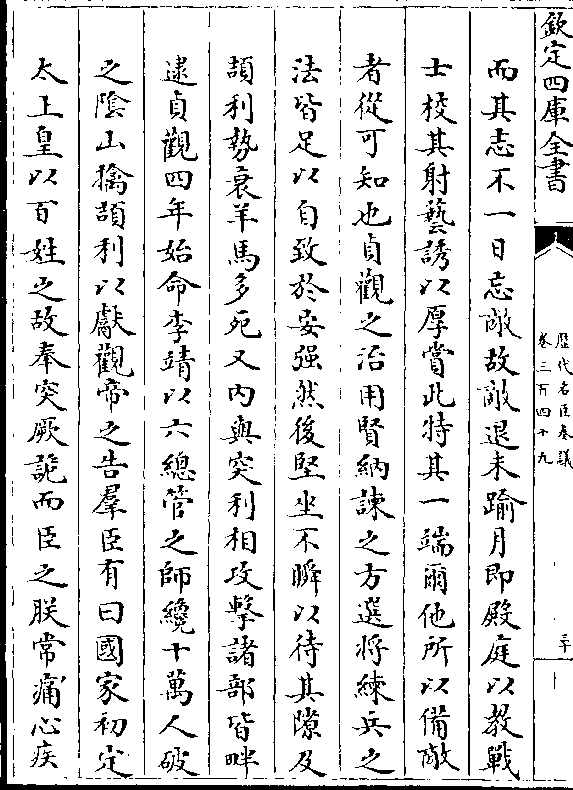 欽定四庫全書
歴代名臣奏議
卷三百四十九
三十
而其志不一日忘敵故敵退未踰月即殿庭以教戰
士校其射藝誘以厚賞此特其一端爾他所以備敵
者從可知也貞觀之治用賢納諫之方選將練兵之
法皆足以自致於安强然後堅坐不瞬以待其隙及
頡利勢衰羊馬多死又内與突利相攻擊諸部皆畔
逮貞觀四年始命李靖以六總管之師纔十萬人破
之隂山擒頡利以獻觀帝之告羣臣有曰國家初定
太上皇以百姓之故奉突厥詭而臣之朕常痛心疾